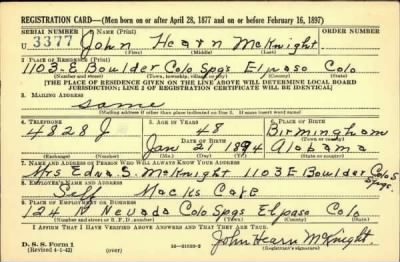 REGISTRATION CARD—(Men born on or after April 28, 1877 and on or before February 16, 1897)
SERIAL NUMBER 1. NAME (Print) ORDER NUMBER
U 3377 John Hearn McKnight
(First) (Middle) (Last)
2. PLACE OF RESIDENCE (Print)
1103-E Boulder Colo Spgs Elpaso Colo
(Number and street) (Town, township, village, or city) (County) (State)
[THE PLACE OF RESIDENCE GIVEN ON THE LINE ABOVE WILL DETERMINE LOCAL BOARD
JURISDICTION; LINE 2 OF REGISTRATION CERTIFICATE WILL BE IDENTICAL]
3. MAILING ADDRESS
Same
[Mailing address if other than place indicated on line 2. If same insert word same]
4. TELEPHONE 5. AGE IN YEARS 6. PLACE OF BIRTH
4828 J 48 Birmingham
DATE OF BIRTH (Town or county)
Jan 21 1894 Alabama
(Exchange) (Number) (Mo.) (Day) (Yr.) (State or country)
7. NAME AND ADDRESS OF PERSON WHO WILL ALWAYS KNOW YOUR ADDRESS
Mrs Edna S. McKnight 1103 E Boulder Colo Spgs.
8. EMPLOYER'S NAME AND ADDRESS
Self Macks Cafe
9. PLACE OF EMPLOYMENT OR BUSINESS
124 N Nevada Colo Spgs Elpaso Colo
(Number and street or R. F. D. number) (Town) (County) (State)
I AFFIRM THAT I HAVE VERIFIED ABOVE ANSWERS AND THAT THEY ARE TRUE.
John Hearn McKnight
D. S. S. Form 1
(Revised 4-1-42) (over) (Registrant's signature)